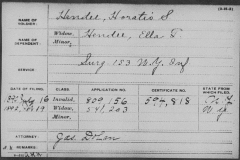 NAME OF SOLDIER: Hendee, Horatio S
NAME OF DEPENDENT: Widow, Hendee, Ella T
Minor,
SERVICE: Surg 153 N.Y. Inf
DATE OF FILING. CLASS. APPLICATION NO. CERTIFICATE NO. STATE FROM WHICH FILED.
July 16 Invalid, 809,156 594,818 N.Y.
Widow, 541,203 N.Y.
Minor,
ATTORNEY:
REMARKS: